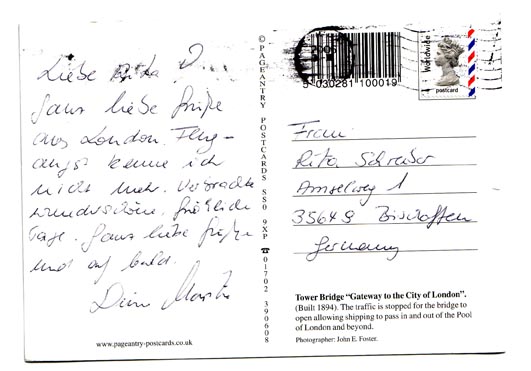 Liebe Rita
ganz liebe Grüße
aus London. Flug-
angst kenne ich
nicht mehr. Verbrachte
wunderschöne,
Tage. Ganz liebe Grüße
und auf bald.
© PAGEANTRY POSTCARDS SS0 9XP ☎ 01702 390608
www.pageantry-postcards.co.uk
2005
5 030281 100019
Worldwide
postcard
Frau
Rita Schreiber
Amselweg 1
35649 Bischoffen
Germany
Tower Bridge “Gateway to the City of London”.
(Built 1894). The traffic is stopped for the bridge to
open allowing shipping to pass in and out of the Pool
of London and beyond.
Photographer: John E. Foster.